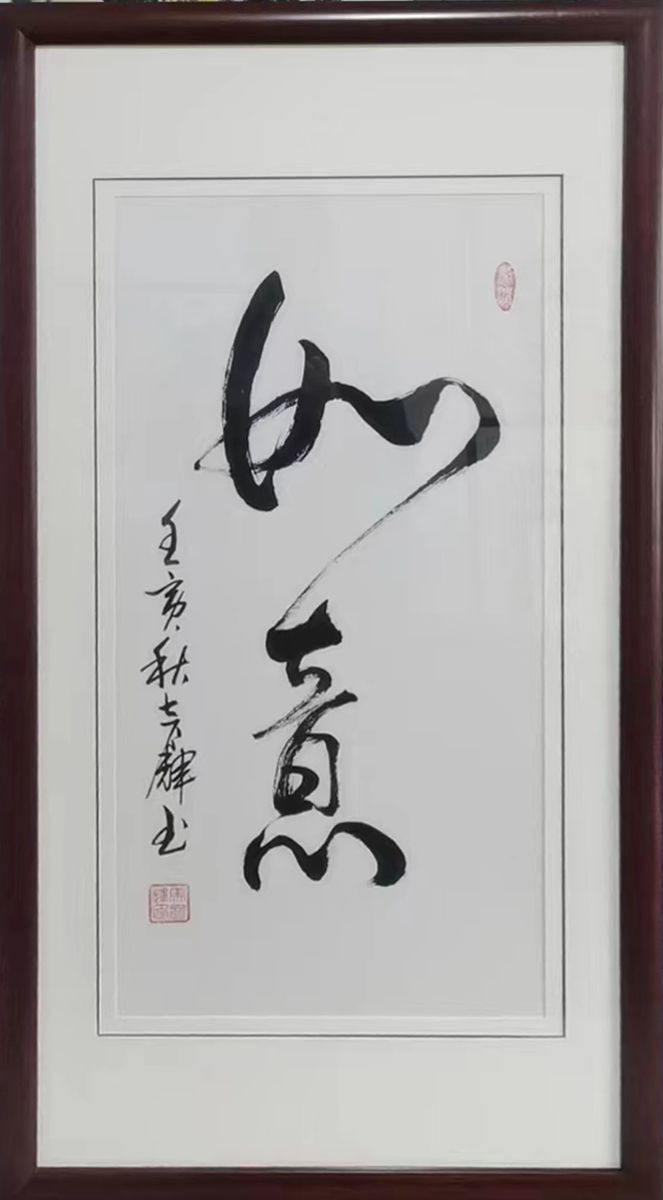 如意
壬寅秋辉书